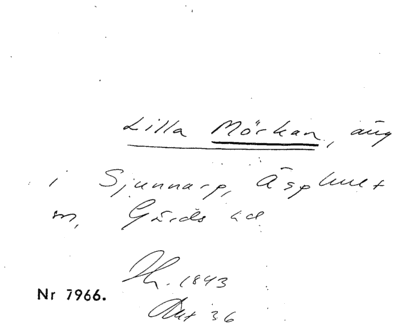 Lilla Mörkan, äng
i Sjunnarp, Äsphult
sn, Gärds hd
1843
Akt 36
Nr 7966.